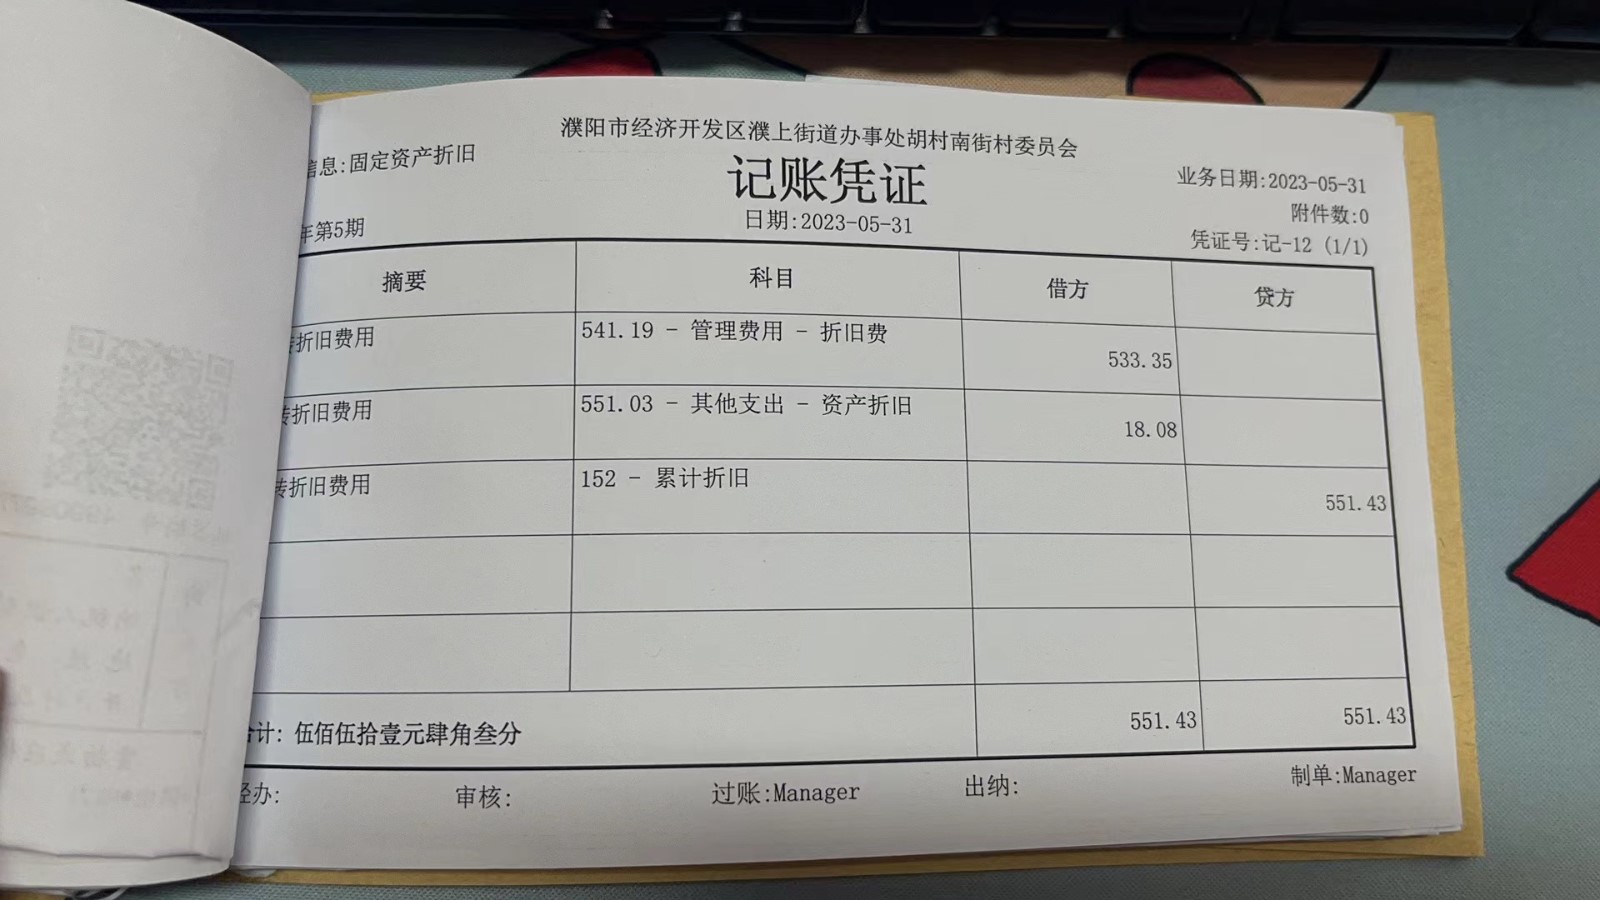 濮阳市经济开发区濮上街道办事处胡村南街村委员会
信息:固定资产折旧
记账凭证
业务日期:2023-05-31
附件数:0
年第5期
日期:2023-05-31
凭证号:记-12 (1/1)
摘要 科目 借方 贷方
转折旧费用 541.19 - 管理费用 - 折旧费 533.35
转折旧费用 551.03 - 其他支出 - 资产折旧 18.08
转折旧费用 152 - 累计折旧 551.43
合计: 伍佰伍拾壹元肆角叁分 551.43 551.43
经办: 审核: 过账:Manager 出纳: 制单:Manager